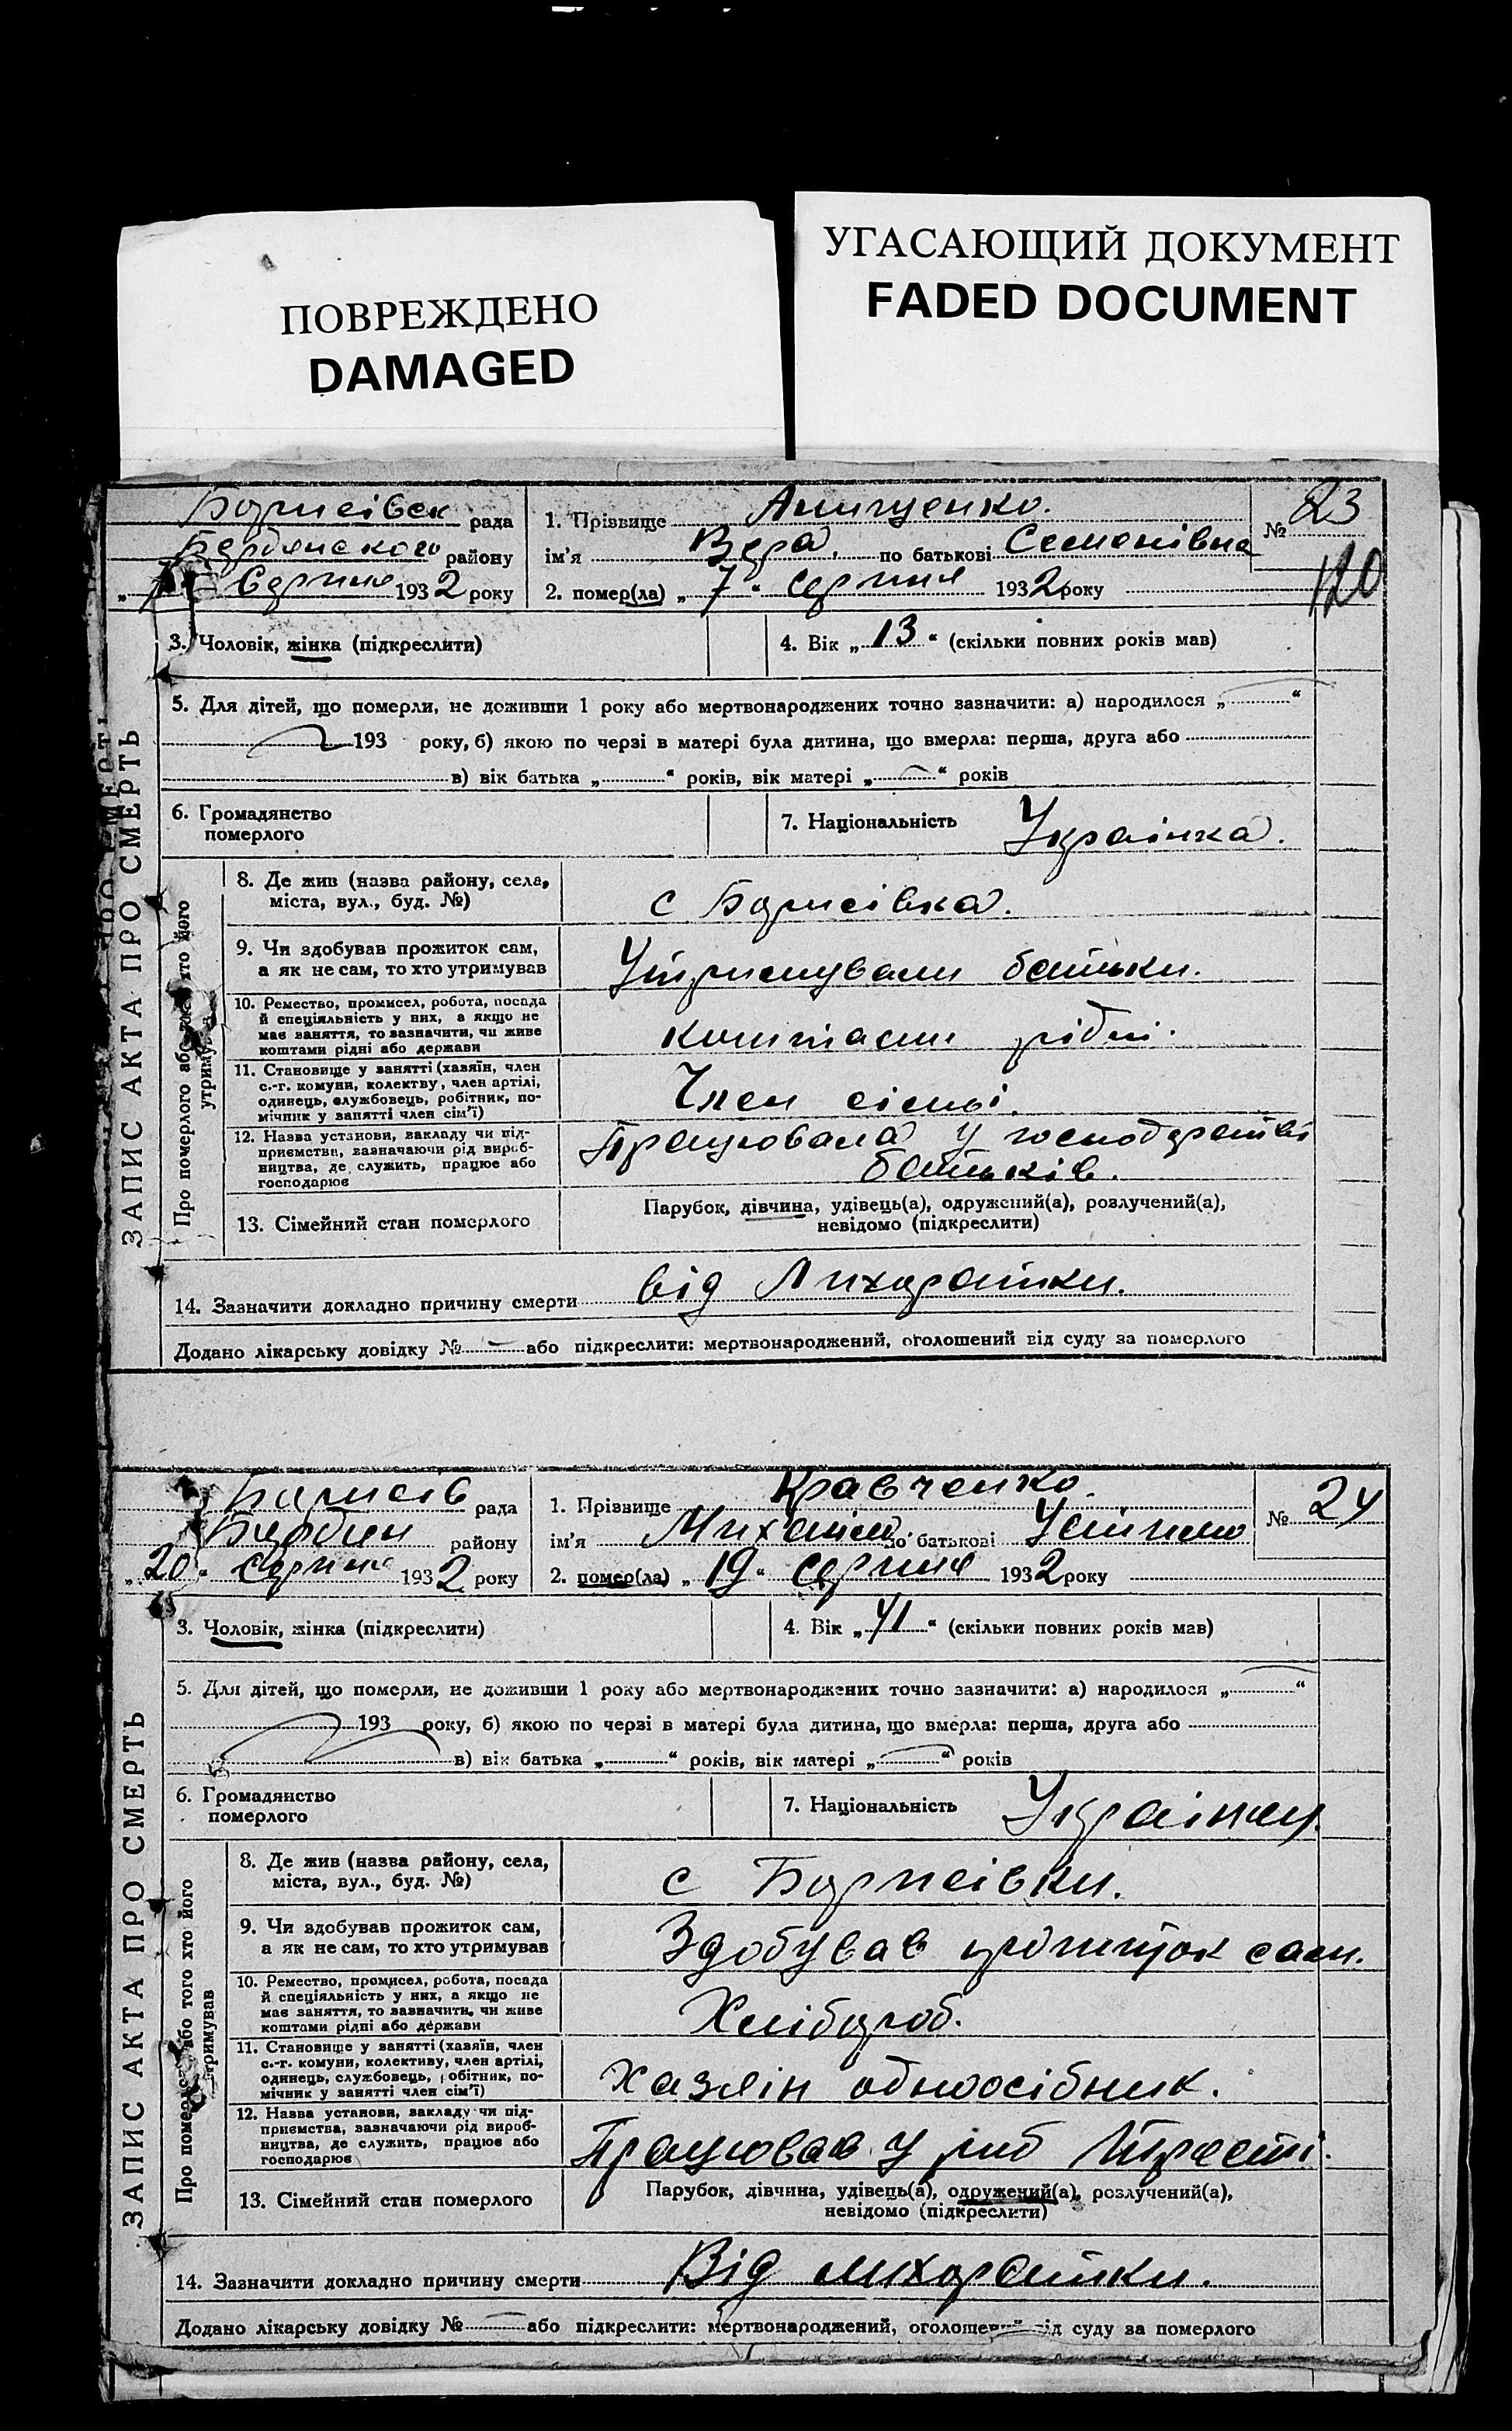 ПОВРЕЖДЕНО
DAMAGED
УГАСАЮЩИЙ ДОКУМЕНТ
FADED DOCUMENT
Борисівск рада
Бердянского району
Серпня 1932 року
1. Прізвище Анищенко.
ім'я Вера, по батькові Семенівна
2. помер(ла) „ 7 “ серпня 1932 року
№ 23
120
3. Чоловік, жінка (підкреслити)
4. Вік „ 13 “ (скільки повних років мав)
5. Для дітей, що померли, не доживши 1 року або мертвонароджених точно зазначити: а) народилося „ “
193 року, б) якою по черзі в матері була дитина, що вмерла: перша, друга або
в) вік батька „ “ років, вік матері „ “ років
6. Громадянство
померлого
7. Національність Українка.
ЗАПИС АКТА ПРО СМЕРТЬ
8. Де жив (назва району, села,
міста, вул., буд. №)
с Борисівка.
9. Чи здобував прожиток сам,
а як не сам, то хто утримував
Утримували батьки.
10. Ремество, промисел, робота, посада
й спеціяльність у них, а якщо не
має заняття, то зазначити, чи живе
коштами рідні або держави
коштами рідні.
11. Становище у занятті (хазяїн, член
с.-г. комуни, колектву, член артілі,
одинець, службовець, робітник, по-
мічник у занятті член сім'ї)
Член сімьі.
12. Назва установи, закладу чи під-
приємства, зазначаючи рід вироб-
ництва, де служить, працює або
господарює
Працювала у господарстві
батьків.
13. Сімейний стан померлого
Парубок, дівчина, удівець(а), одружений(а), розлучений(а),
невідомо (підкреслити)
14. Зазначити докладно причину смерти від Лихоратки.
Додано лікарську довідку № або підкреслити: мертвонароджений, оголошений від суду за померлого
Борисів рада
Бердян району
„ 20 “ серпня 1932 року
1. Прізвище Кравченко.
ім'я Михаіл по батькові
2. помер(ла) „ 19 “ серпня 1932 року
№ 24
3. Чоловік, жінка (підкреслити)
4. Вік „ 41 “ (скільки повних років мав)
5. Для дітей, що померли, не доживши 1 року або мертвонароджених точно зазначити: а) народилося „ “
193 року, б) якою по черзі в матері була дитина, що вмерла: перша, друга або
в) вік батька „ “ років, вік матері „ “ років
6. Громадянство
померлого
7. Національність Українец.
ЗАПИС АКТА ПРО СМЕРТЬ
8. Де жив (назва району, села,
міста, вул., буд. №)
с Борисівки.
9. Чи здобував прожиток сам,
а як не сам, то хто утримував
Здобував прожиток сам.
10. Ремество, промисел, робота, посада
й спеціяльність у них, а якщо не
має заняття, то зазначити, чи живе
коштами рідні або держави
Хлібороб.
11. Становище у занятті (хазяїн, член
с.-г. комуни, колективу, член артілі,
одинець, службовець, робітник, по-
мічник у занятті член сім'ї)
Хазяін одноосібник.
12. Назва установи, закладу чи під-
приємства, зазначаючи рід вироб-
ництва, де служить, працює або
господарює
Працював у риб Тресті.
13. Сімейний стан померлого
Парубок, дівчина, удівець(а), одружений(а), розлучений(а),
невідомо (підкреслити)
14. Зазначити докладно причину смерти Від лихоратки.
Додано лікарську довідку № або підкреслити: мертвонароджений, оголошений від суду за померлого